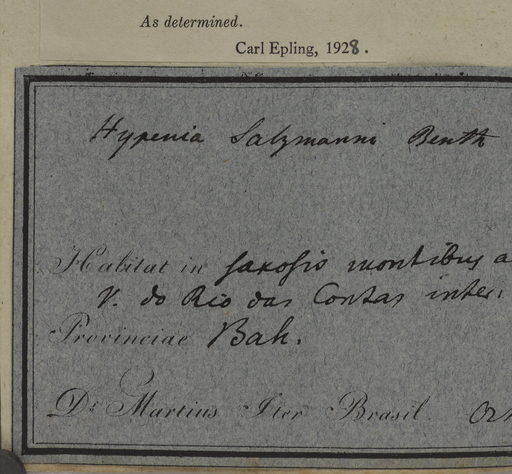 As determined.
Carl Epling, 1928.
Hypenia Salzmanni Benth
Habitat in saxosis montibus a
V. do Rio das Contas inter.
Provinciae Bah.
Dr Martius Iter Brasil.